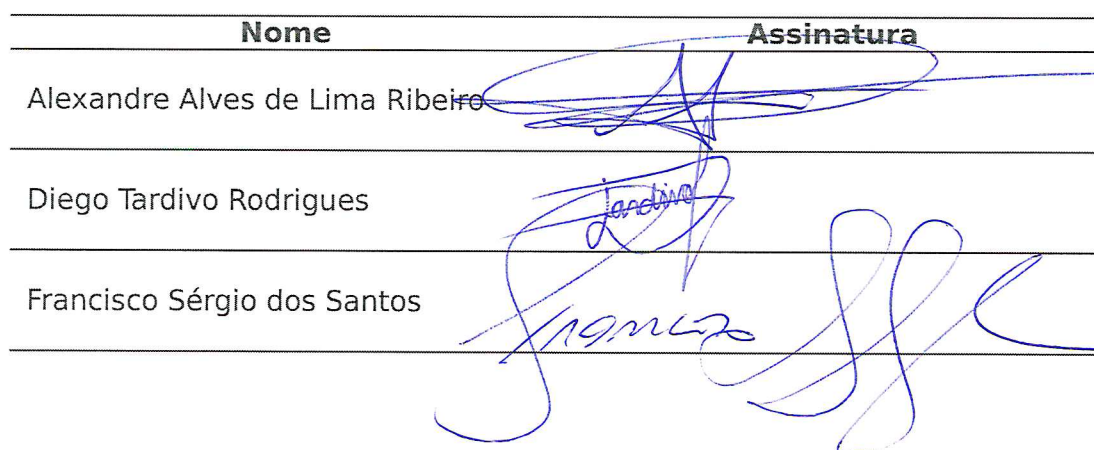 Nome Assinatura
Alexandre Alves de Lima Ribeiro
Diego Tardivo Rodrigues Tardivo
Francisco Sérgio dos Santos Francisco